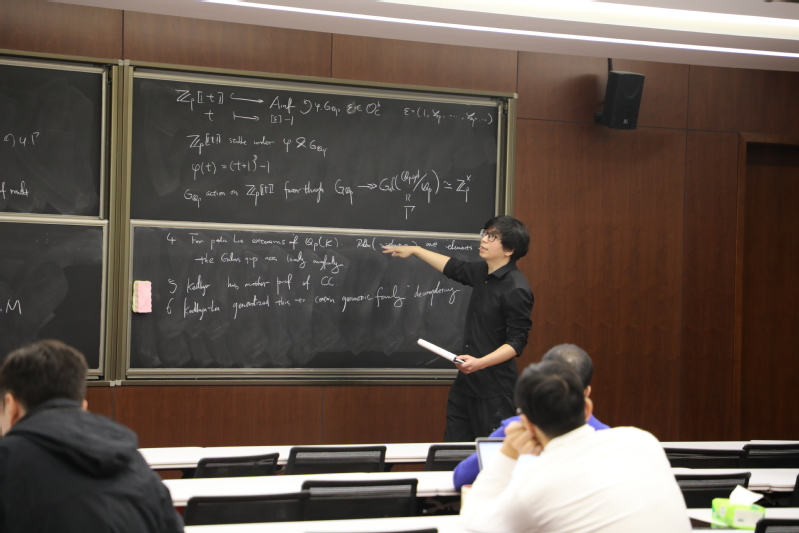 ℤ_p[[t]] ⟶ A_inf ↻ φ, G_{ℚ_p} ε ∈ O_C^♭ ε = (1, ζ_p, ..., ζ_{p^n}, ...)
t ⟼ [ε]-1
ℤ_p[[t]] stable under φ & G_{ℚ_p}
φ(t) = (t+1)^p - 1
G_{ℚ_p} action on ℤ_p[[t]] factor through G_{ℚ_p} ↠ Gal(/ℚ_p) ≃ ℤ_p^×
Γ
↻ φ, Γ
of
M
4. For Lie extensions of ℚ_p(K) are elements
the Galois grp acts locally analytically
5 Kedlaya has another proof of CC
6 Kedlaya-Liu generalized this to certain geometric family "decompleting"